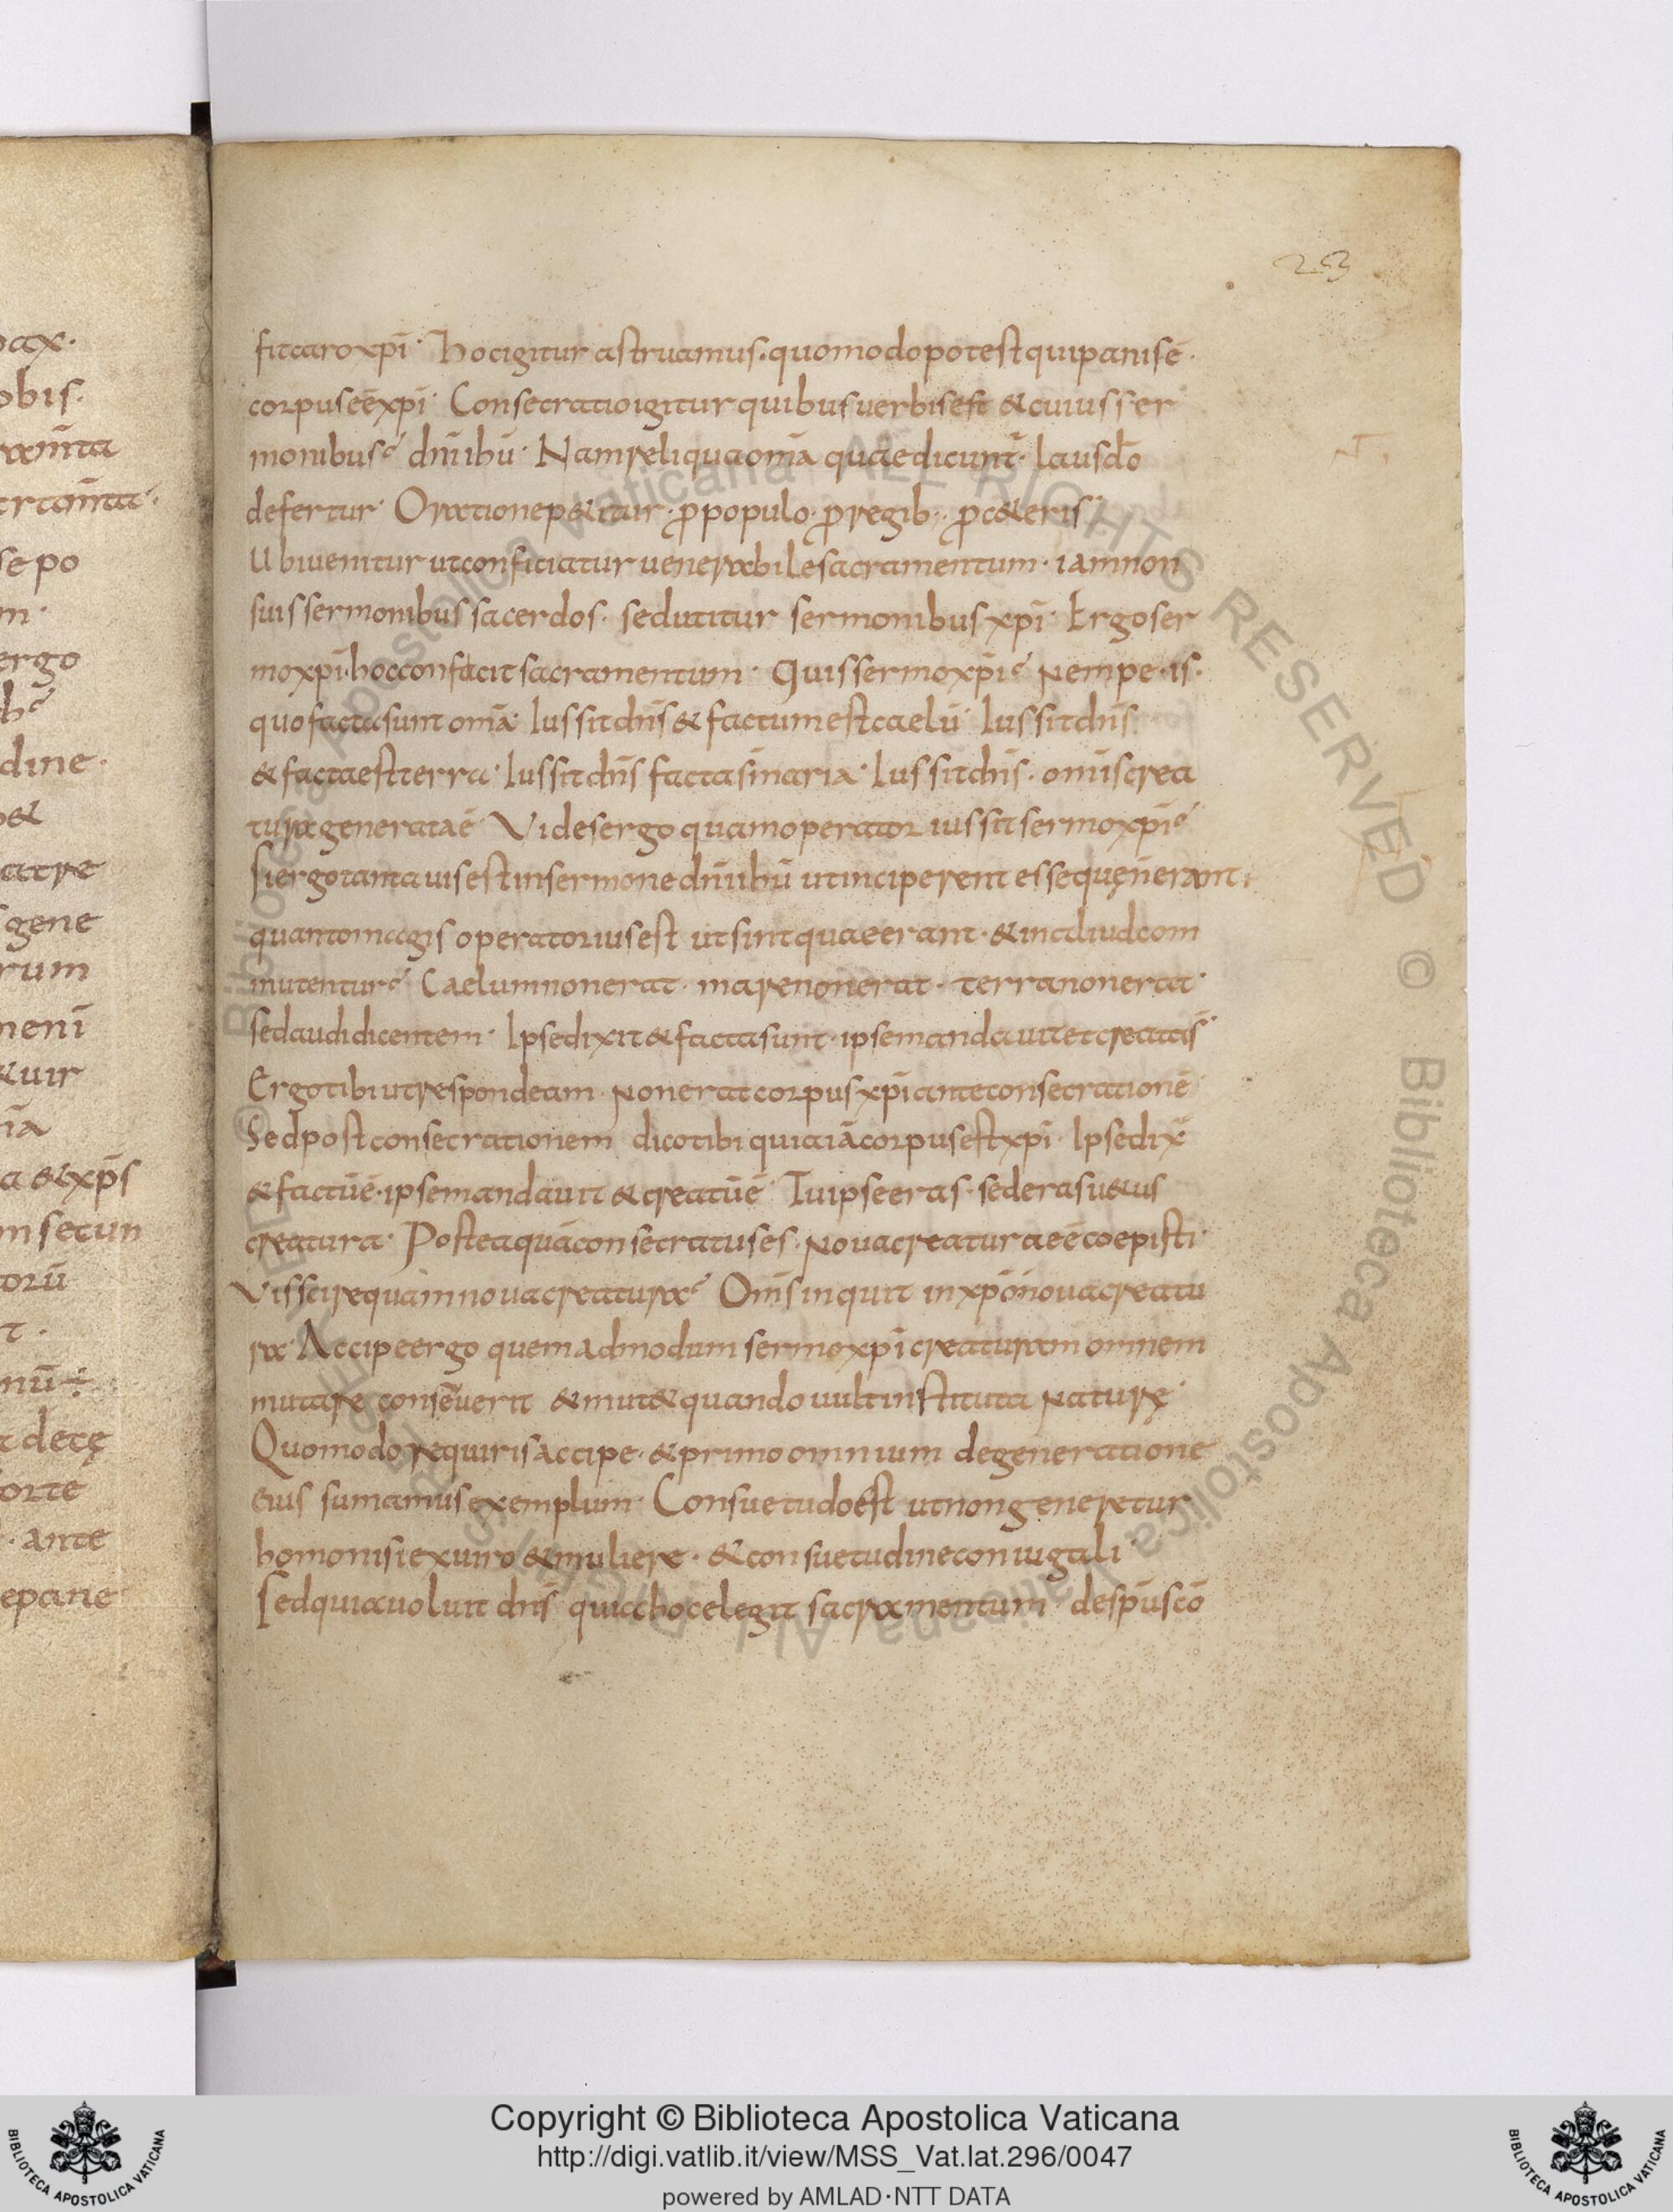 23
fit caro xpī· Hoc igitur astruamus· quomodo potest qui panis ē·
corpus eē xpī· Consecratio igitur quibus uerbis est & cuius ser
monibus? dn̄i ihū· Nam reliqua om̄a quae dicunt̄· laus dō
defertur· Oratione p&itur· ꝓ populo· ꝓ regib;· ꝓ c&eris·
Ubi uenitur ut conficiatur uenerabile sacramentum· iam non
suis sermonibus sacerdos· sed utitur sermonibus xpī· Ergo ser
mo xpī· hoc conficit sacramentum· Quis sermo xpī? Nempe· is·
quo facta sunt om̄a· Iussit dn̄s & factum est caelū· Iussit dn̄s
& facta est terra· Iussit dn̄s facta s̄ maria· Iussit dn̄s· om̄is crea
tura generata ē· Vides ergo quam operator iussit sermo xpī?
Si ergo tanta uis est in sermone dn̄i ihū ut inciperent esse quę n̄ erant·
quanto magis operatorius est ut sint quae erant· & in aliud com
mutentur? Caelum non erat· mare non erat· terra non erat·
sed audi dicentem· Ipse dixit & facta sunt· ipse mandauit et creata s̄·
Ergo tibi ut respondeam· Non erat corpus xpī ante consecrationē
Sed post consecrationem dico tibi quia iā corpus est xpī· Ipse dix̄
& factū ē· ipse mandauit & creatū ē· Tu ipse eras· sed eras u&us
creatura· Postea quā consecratus es· Noua creatura eē coepisti·
Vis scire quam noua creatura? Om̄s inquit in xpō noua creatu
ra· Accipe ergo quemadmodum sermo xpī creaturam omnem
mutare consueuerit & mut& quando uult instituta naturę·
Quomodo requiris accipe· & primo omnium de generatione
eius sumamus exemplum· Consuetudo est ut non generetur
homo nisi ex uiro & muliere· & consuetudine coniugali·
Sed quia uoluit dn̄s quia hoc elegit sacramentum· de spū scō
ax·
obis·
se po
m·
ergo
dine·
o&
gene
rum
meni
& uir
a & xp̄s
m secun
torū
t·
t detę
orte
· ante
e pane
Copyright © Biblioteca Apostolica Vaticana
http://digi.vatlib.it/view/MSS_Vat.lat.296/0047
powered by AMLAD·NTT DATA
BIBLIOTECA APOSTOLICA VATICANA
BIBLIOTECA APOSTOLICA VATICANA